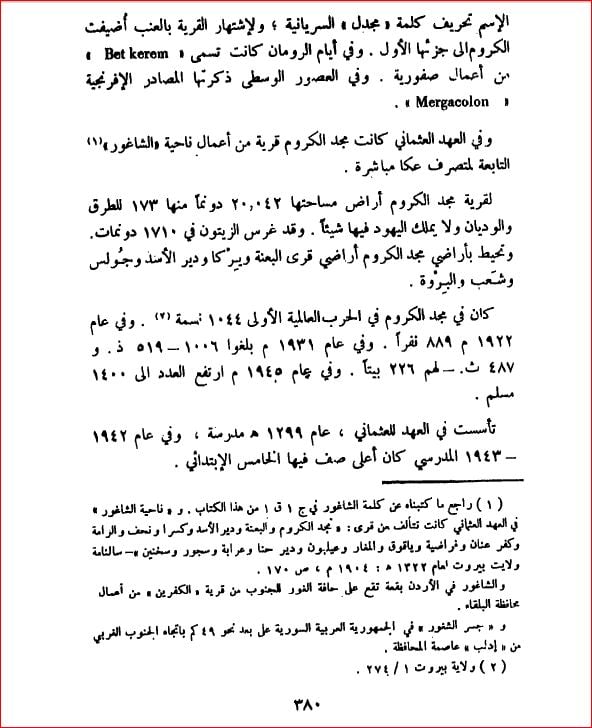 الإسم تحريف كلمة « مجدل » السريانية ؛ ولإشتهار القرية بالعنب أُضيفت
الكروم الى جزئها الأول . وفي أيام الرومان كانت تسمى « Bet kerem »
من أعمال صفورية . وفي العصور الوسطى ذكرتها المصادر الإفرنجية
« Mergacolon » .
وفي العهد العثماني كانت مجد الكروم قرية من أعمال ناحية «الشاغور» (١)
التابعة لمتصرف عكا مباشرة .
لقرية مجد الكروم أراض مساحتها ٢٠,٠٤٢ دونماً منها ١٧٣ للطرق
والوديان ولا يملك اليهود فيها شيئاً . وقد غرس الزيتون في ١٧١٠ دونمات.
وتحيط بأراضي مجد الكروم أراضي قرى البعنة ويِرْكا ودير الأسد وجُولس
وشَعَب والبِرْوة .
كان في مجد الكروم في الحرب العالمية الأولى ١٠٤٤ نسمة (٢) . وفي عام
١٩٢٢ م ٨٨٩ نفراً . وفي عام ١٩٣١ م بلغوا ١٠٠٦ – ٥١٩ ذ. و
٤٨٧ ث. – لهم ٢٢٦ بيتاً . وفي عام ١٩٤٥ م ارتفع العدد الى ١٤٠٠
مسلم .
تأسست في العهد للعثماني ، عام ١٢٩٩ ه مدرسة ، وفي عام ١٩٤٢
– ١٩٤٣ المدرسي كان أعلى صف فيها الخامس الإبتدائي .
( ١ ) راجع ما كتبناه عن كلمة الشاغور في ج ١ ق ١ من هذا الكتاب . و « ناحية الشاغور »
في العهد العثماني كانت تتألف من قرى : « مجد الكروم والبعنة ودير الأسد وكسرا ونحف والرامة
وكفر عنان وفراضية وياقوق والمغار وعيلبون ودير حنا وعرابة وسجور وسخنين » – سالنامة
ولايت بيروت لعام ١٣٢٢ ه : ١٩٠٤ م ، ص ١٧٠ .
والشاغور في الأردن بقعة تقع على حافة الغور للجنوب من قرية « الكفرين » من أعمال
محافظة البلقاء .
و « جسر الشغور » في الجمهورية العربية السورية على بعد نحو ٤٩ كم باتجاه الجنوب الغربي
من « إدلب » عاصمة المحافظة .
( ٢ ) ولاية بيروت ١ / ٢٧٤ .
٣٨٠